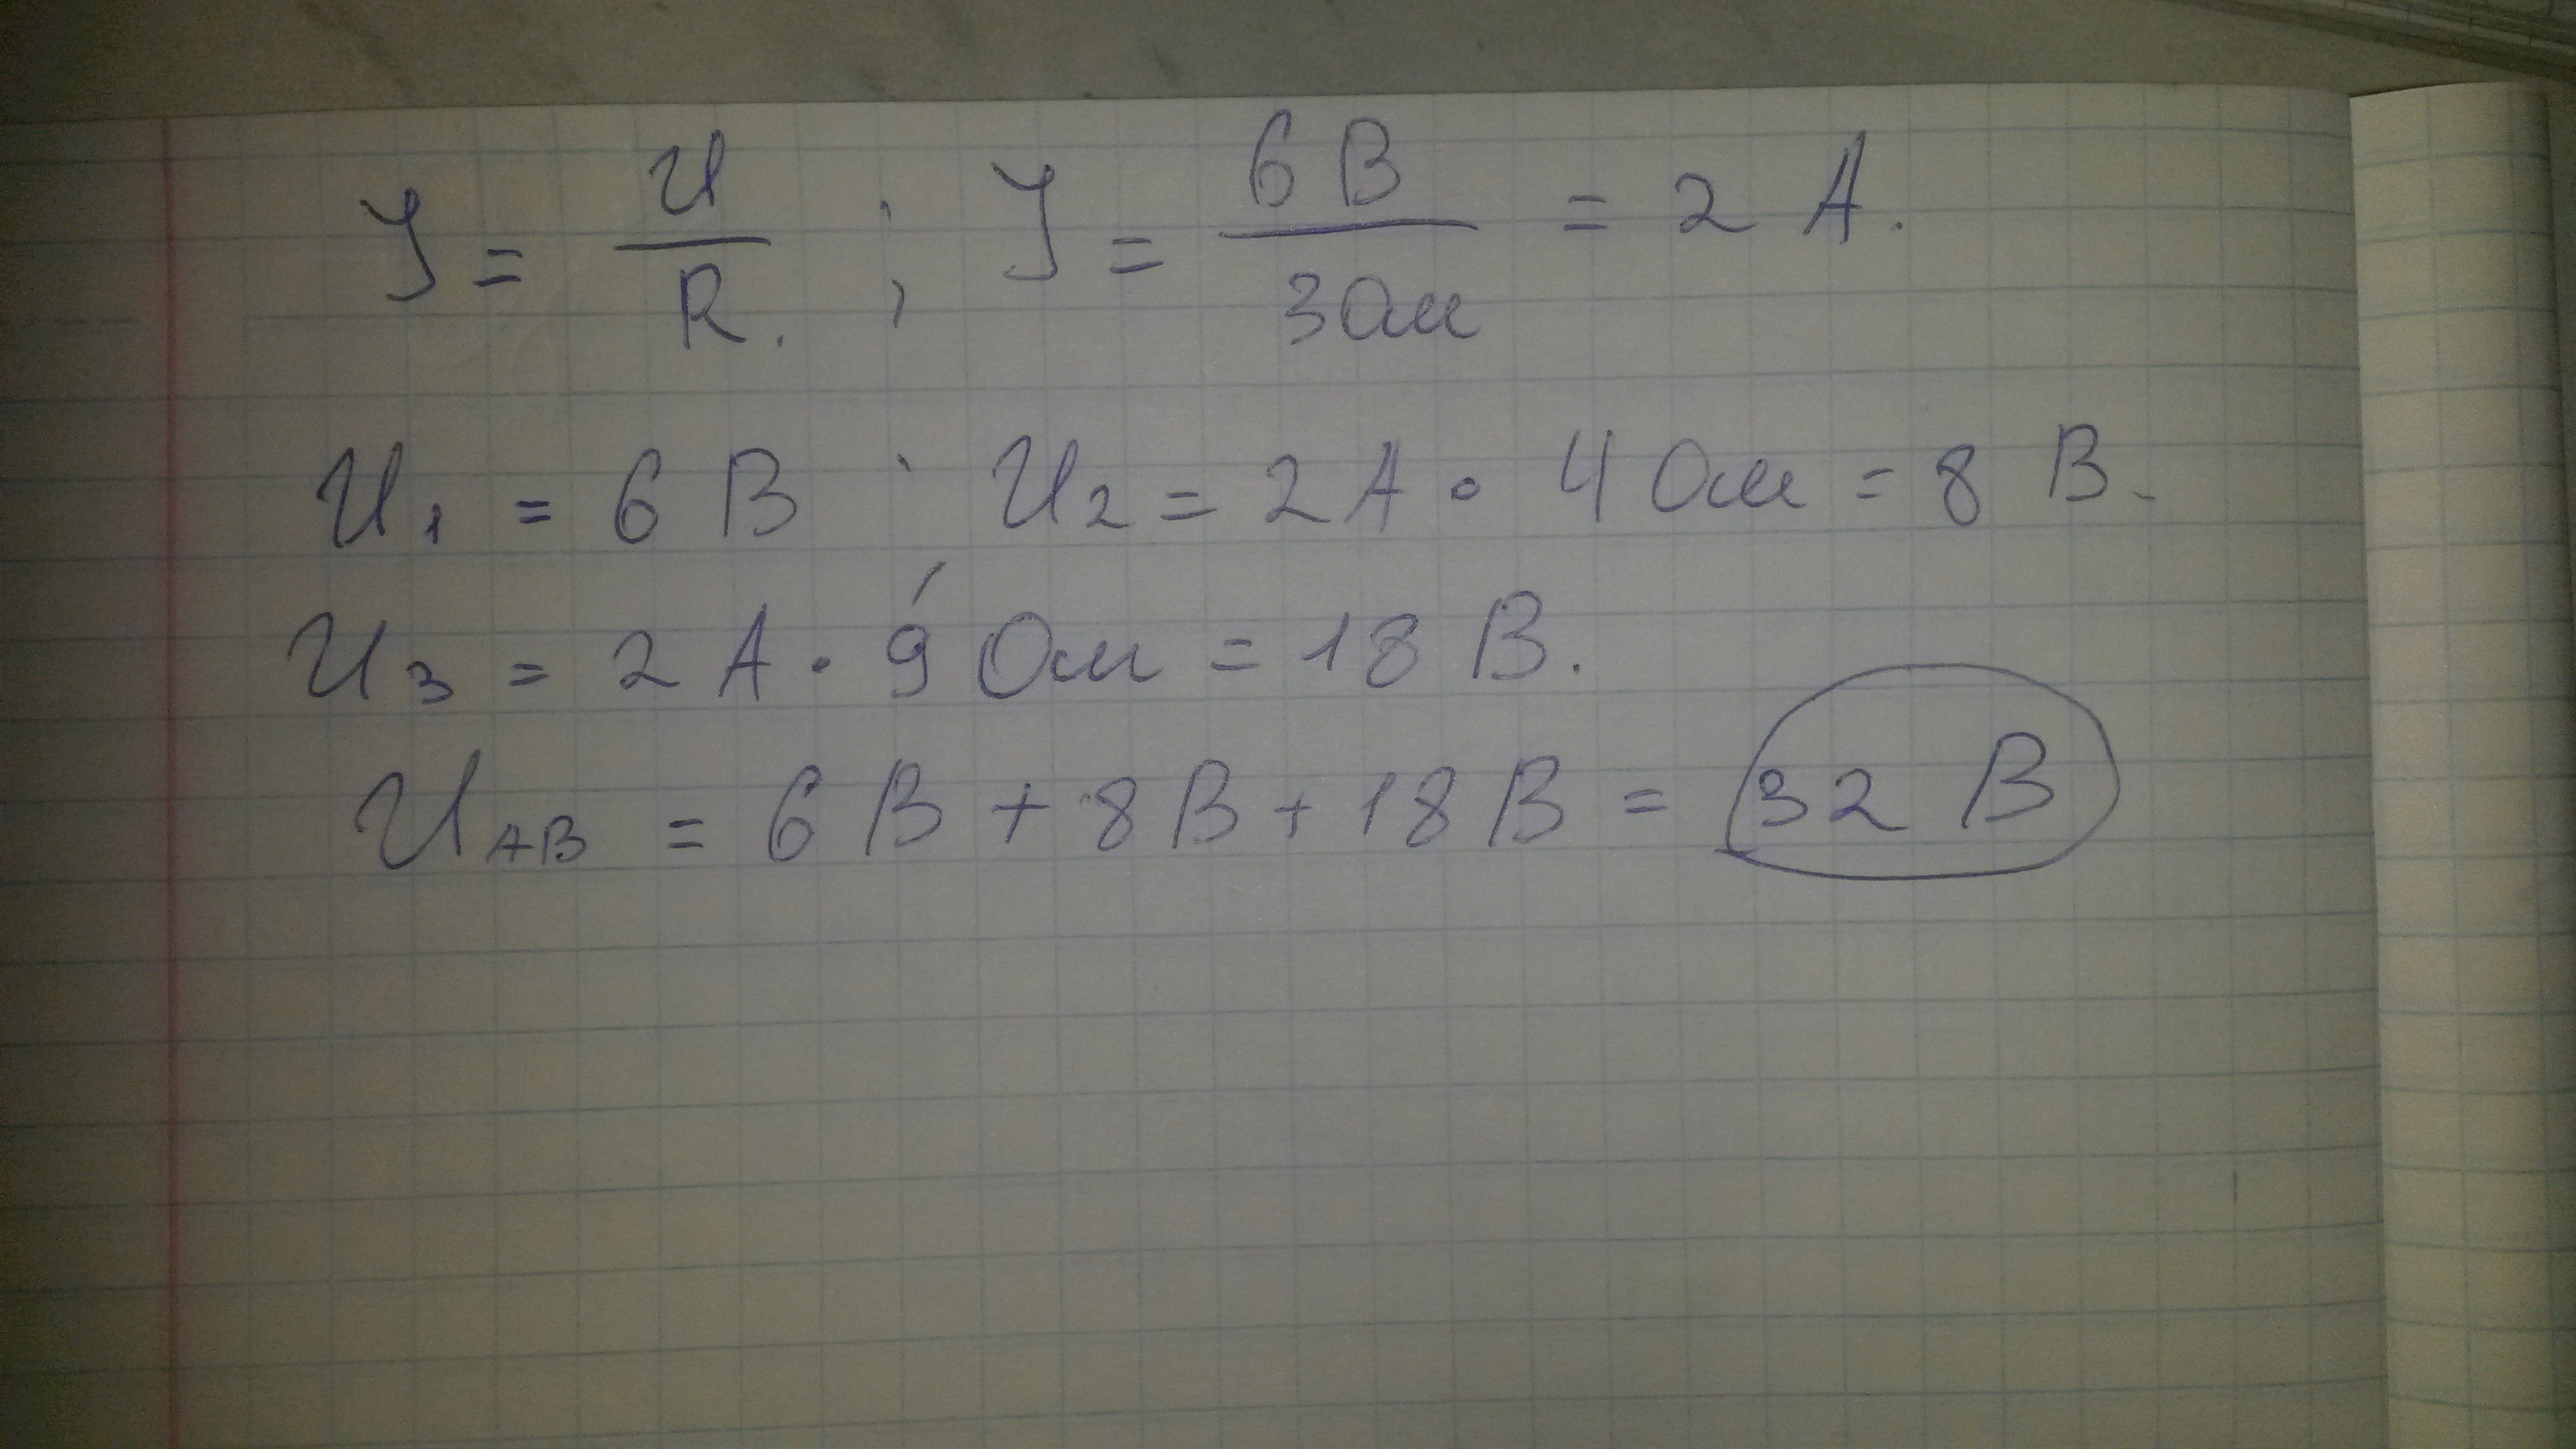 I = U/R. ; I = 6 В/3 Ом = 2 А.
U₁ = 6 В U₂ = 2 А · 4 Ом = 8 В.
U₃ = 2 А · 9 Ом = 18 В.
U_AB = 6 В + 8 В + 18 В = 32 В